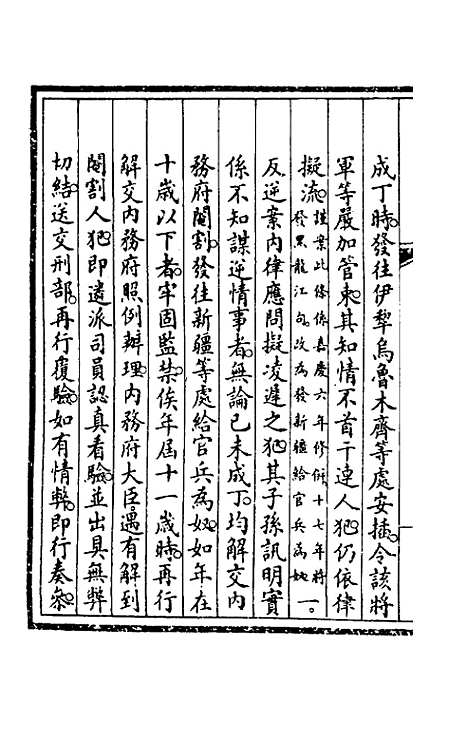 成丁時發往伊犁烏魯木齊等處安插令該將
軍等嚴加管束其知情不首干連人犯仍依律
擬流謹案此條係嘉慶六年修併十七年將發黑龍江句改為發新疆給官兵為奴一
反逆案內律應問擬凌遲之犯其子孫訊明實
係不知謀逆情事者無論已未成丁均解交內
務府閹割發往新疆等處給官兵為奴如年在
十歲以下者牢固監禁俟年屆十一歲時再行
解交內務府照例辦理內務府大臣遇有解到
閹割人犯即遴派司員認真看驗並出具無弊
切結送交刑部再行覆驗如有情弊即行奏參